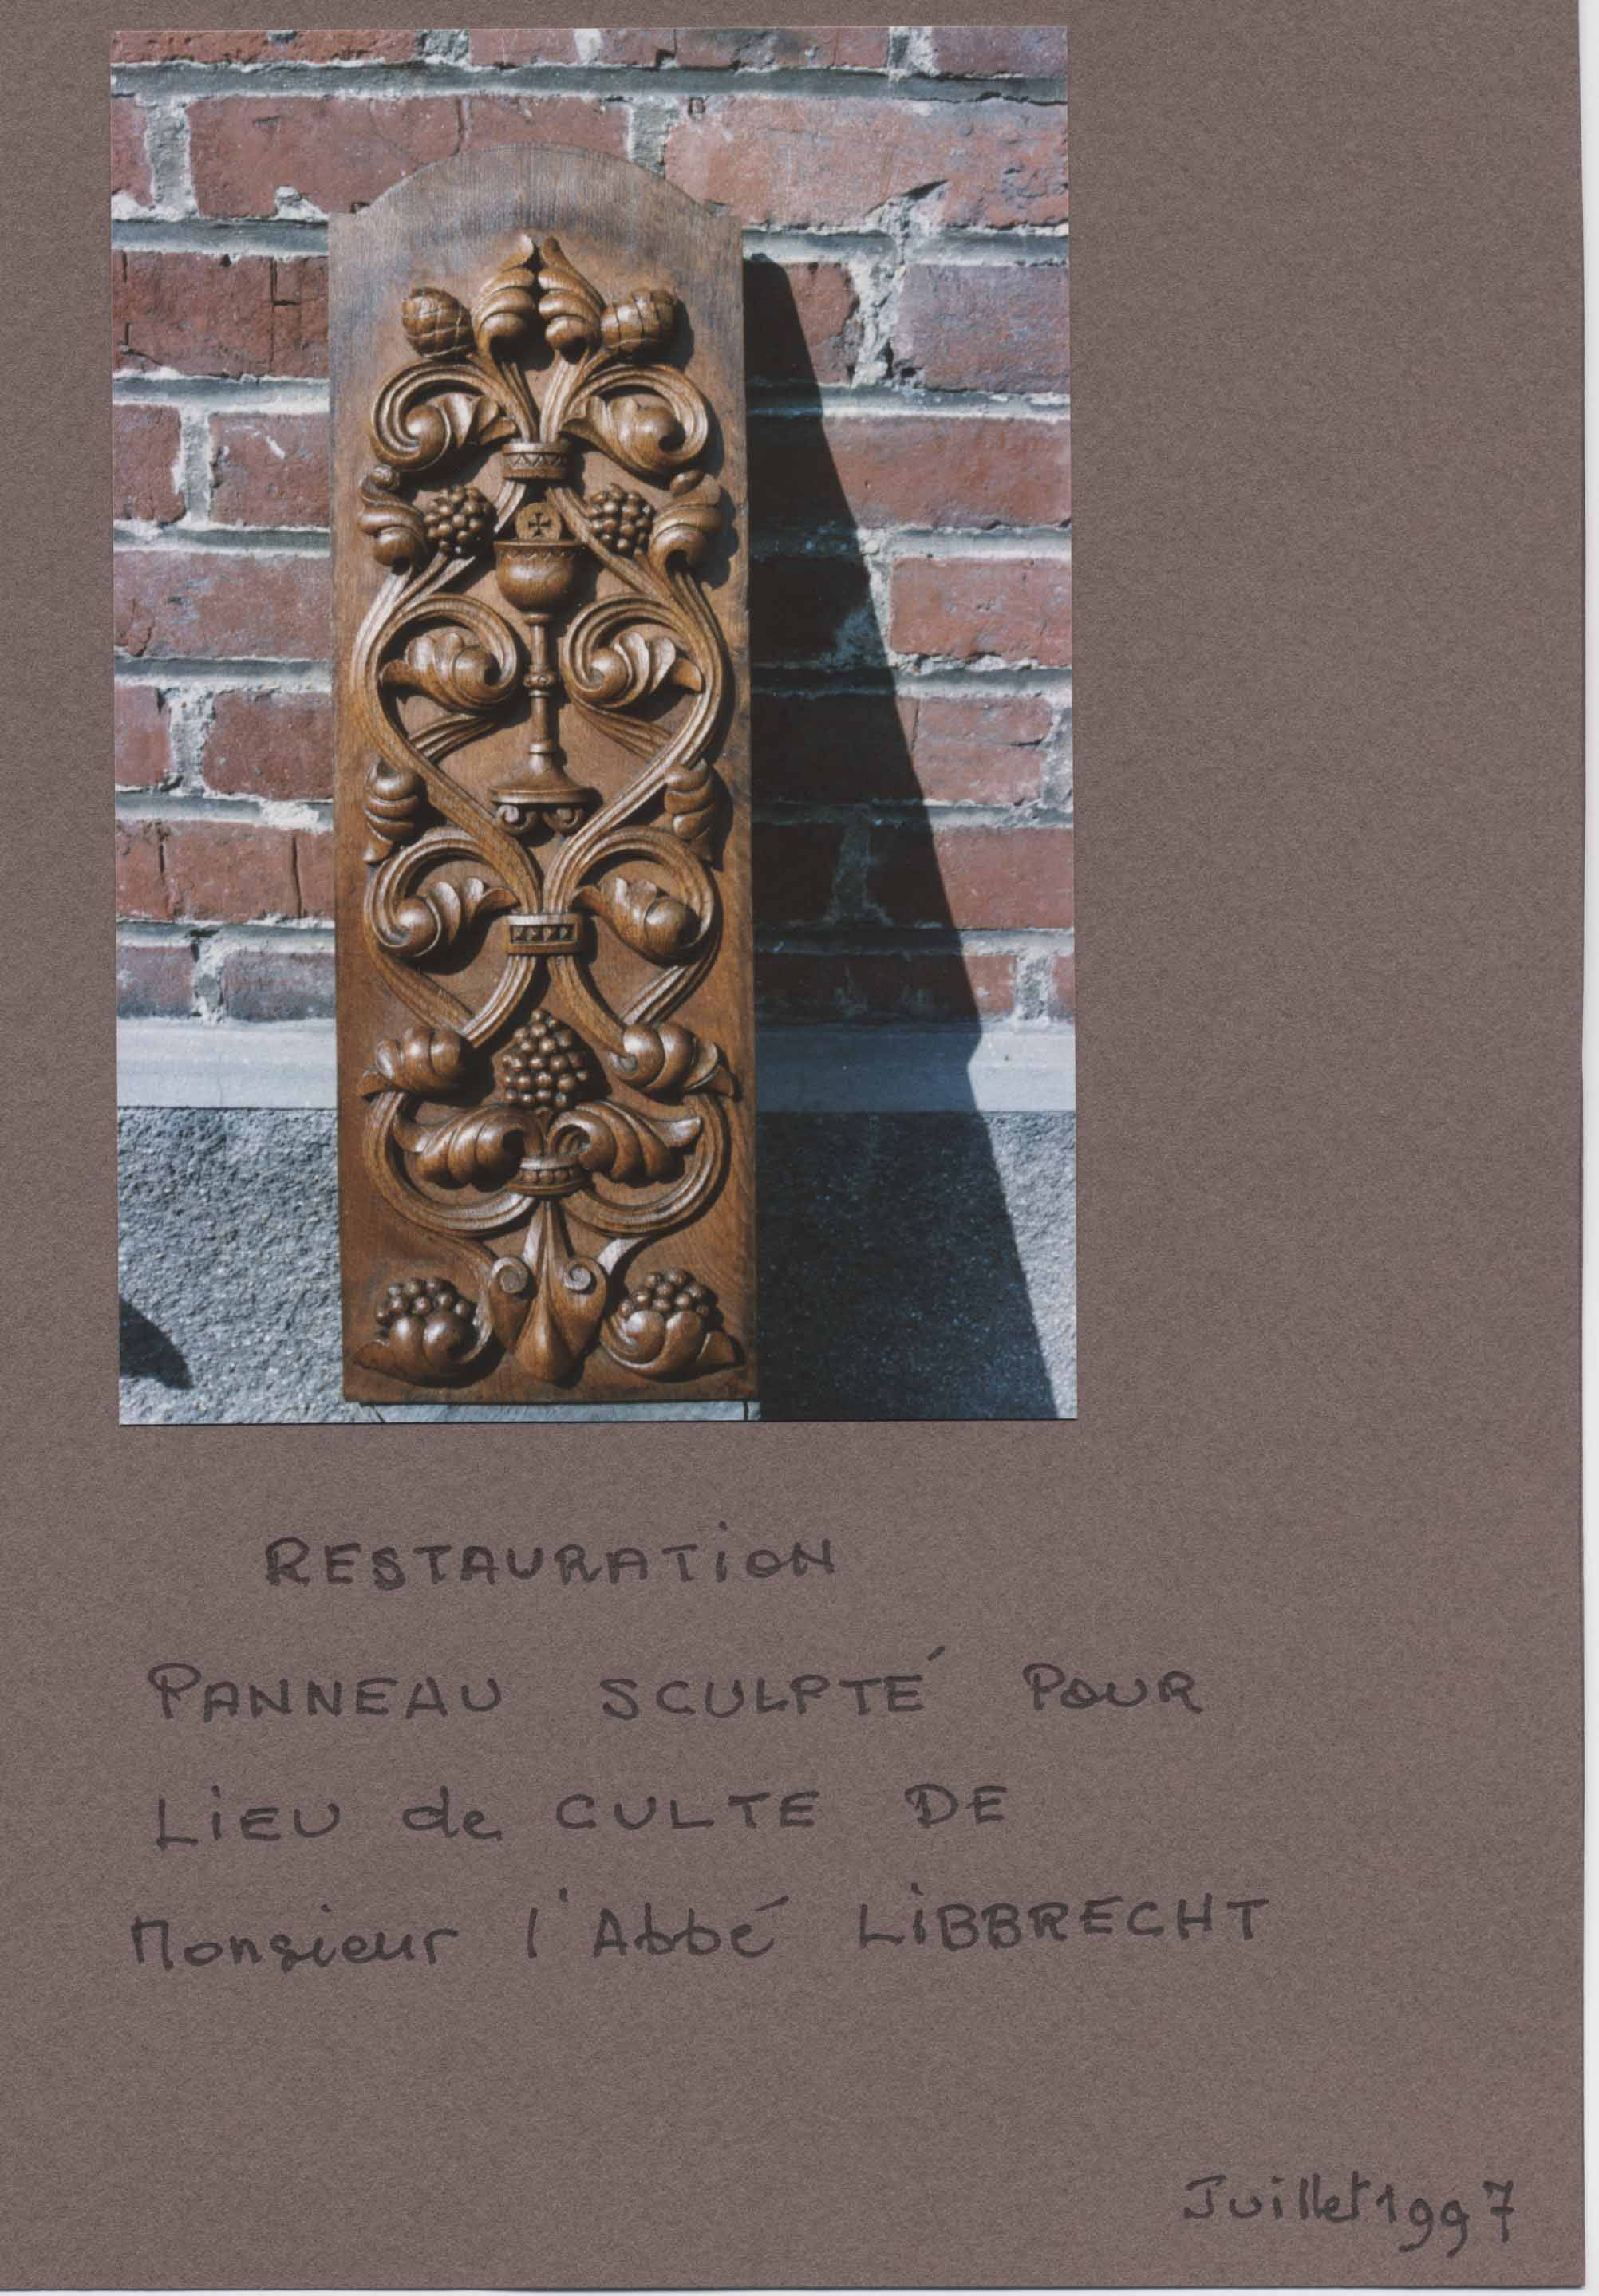 RESTAURATION
PANNEAU SCULPTÉ POUR
LIEU de CULTE DE
Monsieur l'Abbé LIBBRECHT
Juillet 1997